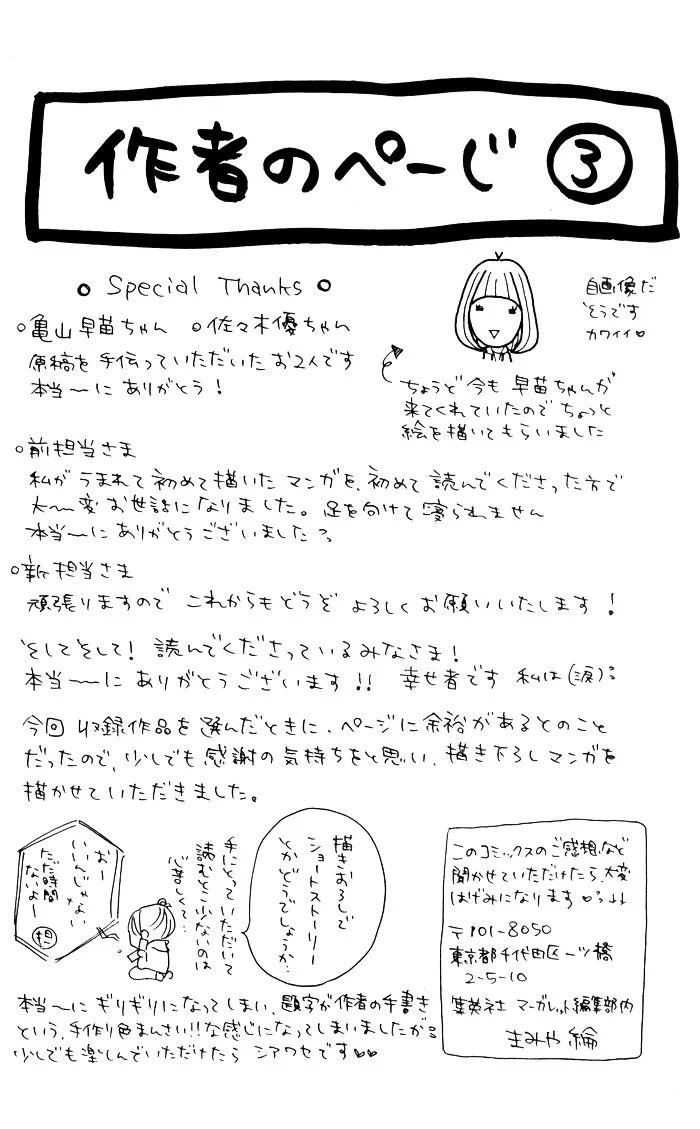 作者のぺーじ ③
○ Special Thanks ○
○亀山早苗ちゃん ○佐々木優ちゃん
原稿を手伝っていただいたお2人です
本当〜にありがとう!
自画像だ
そうです
カワイイ♡
ちょうど今も早苗ちゃんが
来てくれていたのでちょっと
絵を描いてもらいました
○前担当さま
私がうまれて初めて描いたマンガを、初めて読んでくださった方で
大〜変お世話になりました。足を向けて寝られません
本当〜にありがとうございました
○新担当さま
頑張りますので これからもどうぞ よろしくお願いいたします!
そしてそして! 読んでくださっているみなさま!
本当〜〜にありがとうございます!! 幸せ者です 私は(涙)
今回収録作品を選んだときに、ページに余裕があるとのこと
だったので、少しでも感謝の気持ちをと思い、描き下ろしマンガを
描かせていただきました。
描きおろしで
ショートストーリー
とかどうでしょうか…
手にとっていただいて
読むとこ少ないのは
心苦しくて…
おー
いいんじゃない
ただ時間
ないよー
担
本当〜にギリギリになってしまい、題字が作者の手書き
という、手作り色まんさい!!な感じになってしまいましたが
少しでも楽しんでいただけたら シアワセです♡♡
このコミックスのご感想など
聞かせていただけたら、大変
はげみになります♡
〒101-8050
東京都千代田区一ツ橋
2-5-10
集英社 マーガレット編集部内
まみや 綸